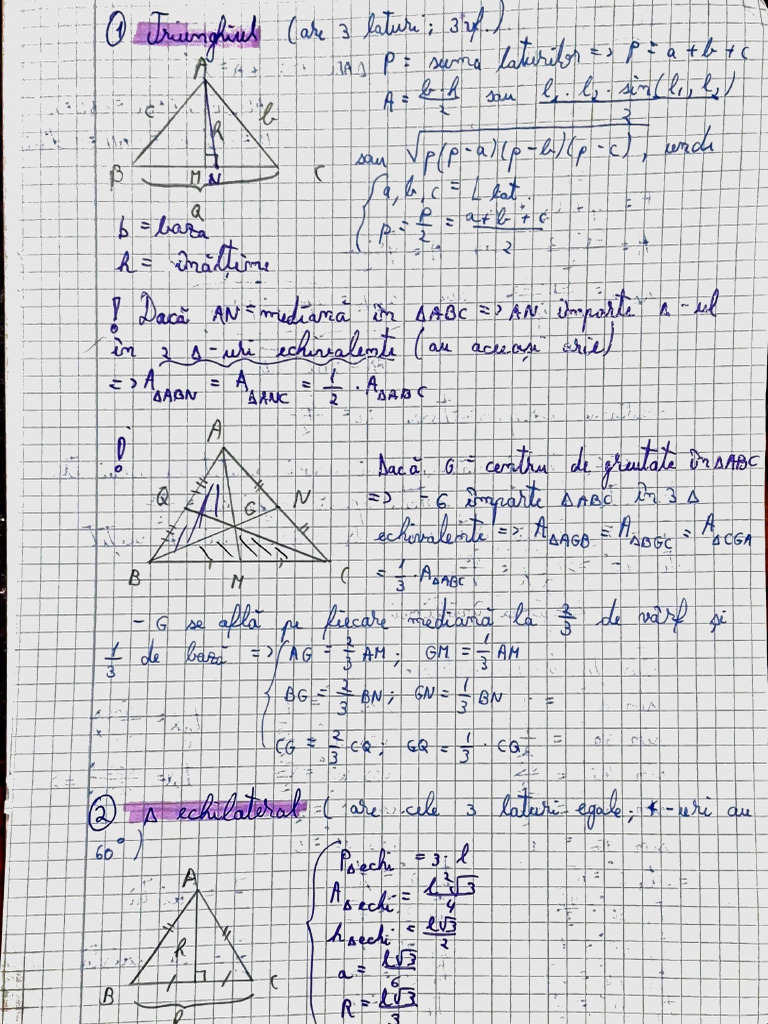 ① Triunghiul (are 3 laturi; 3 vf.)
P = suma laturilor => P = a + b + c
A = b·h/2 sau l₁·l₂·sin(l₁,l₂)/2
sau √p(p-a)(p-b)(p-c), unde
a, b, c = L lat.
p = P/2 = a+b+c/2
A
c h b
B M N C
Q
b = baza
h = înălțime
! Dacă AN = mediană în ΔABC => AN împarte Δ-ul
în 2 Δ-uri echivalente (au aceeași arie)
=> A ΔABN = A ΔANC = 1/2 · A ΔABC
!
A
Q G N
B M C
Dacă G = centru de greutate în ΔABC
=> - G împarte ΔABC în 3 Δ
echivalente => A ΔAGB = A ΔBGC = A ΔCGA
= 1/3 · A ΔABC
- G se află pe fiecare mediană la 2/3 de vârf și
1/3 de bază => AG = 2/3 AM; GM = 1/3 AM
BG = 2/3 BN; GN = 1/3 BN
CG = 2/3 CQ; GQ = 1/3 · CQ
② Δ echilateral (are cele 3 laturi egale; ∢-uri au
60°)
A
h
B C
l
P Δechi = 3·l
A Δechi = l²√3/4
h Δechi = l√3/2
a = l√3/6
R = l√3/3